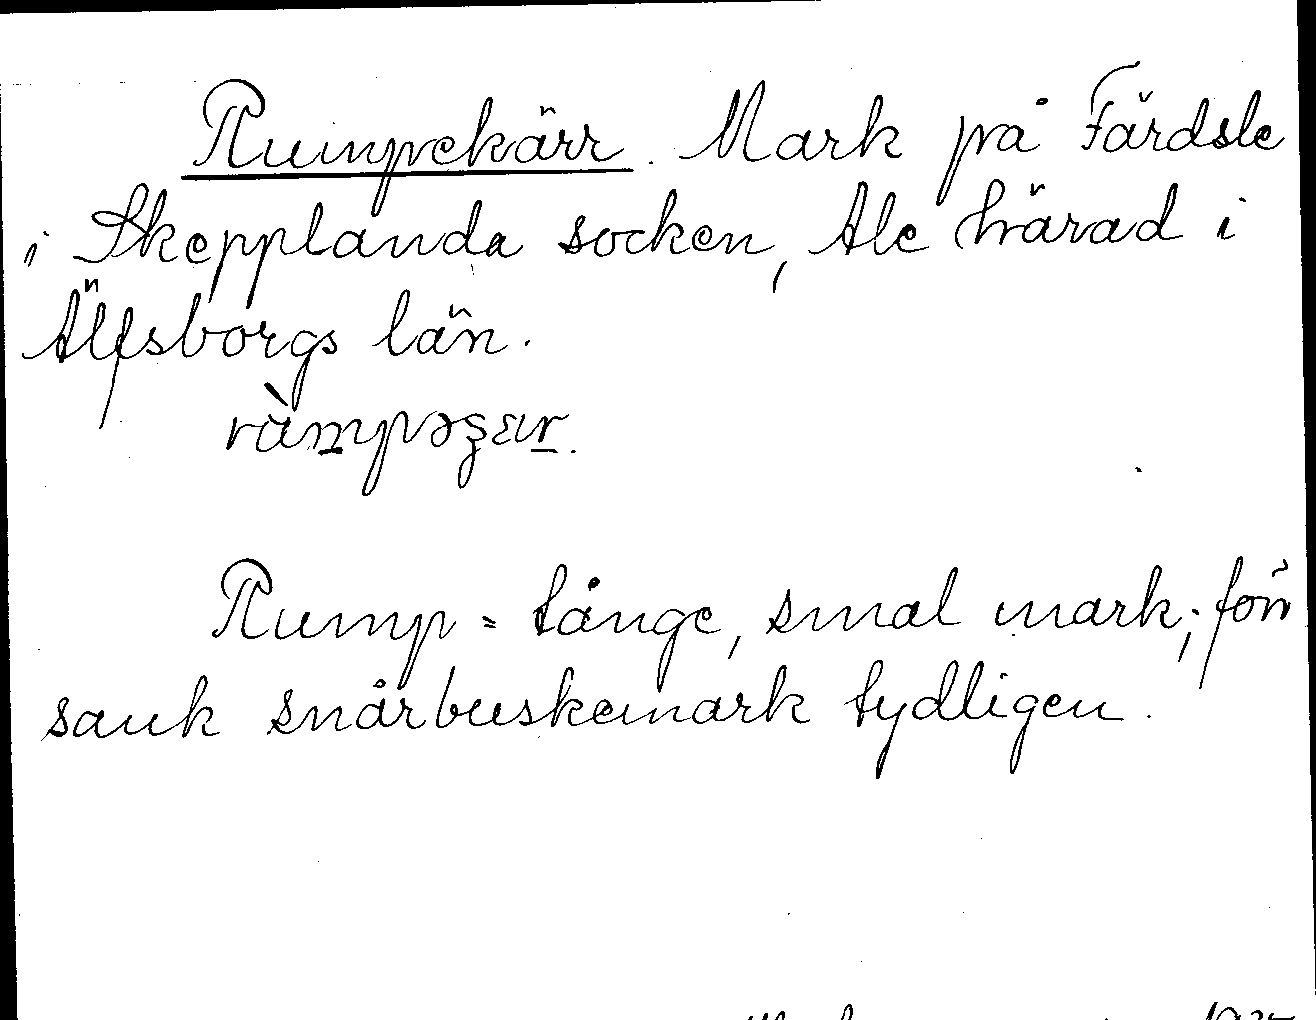 Rumpekärr. Mark på Färdsle
i Skepplanda socken, Ale härad i
Älfsborgs län.
ràmpəʂær.
Rump = tånge, smal mark; förr
sank snårbuskemark tydligen.